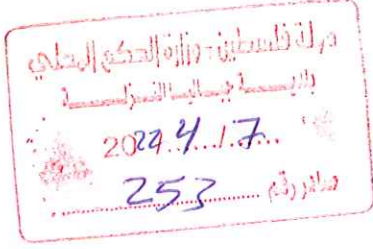 دولة فلسطين - وزارة الحكم المحلي
بلديــــة جباليا النــزلــــــة
2024...4.../.7...
صادر رقم ...253...